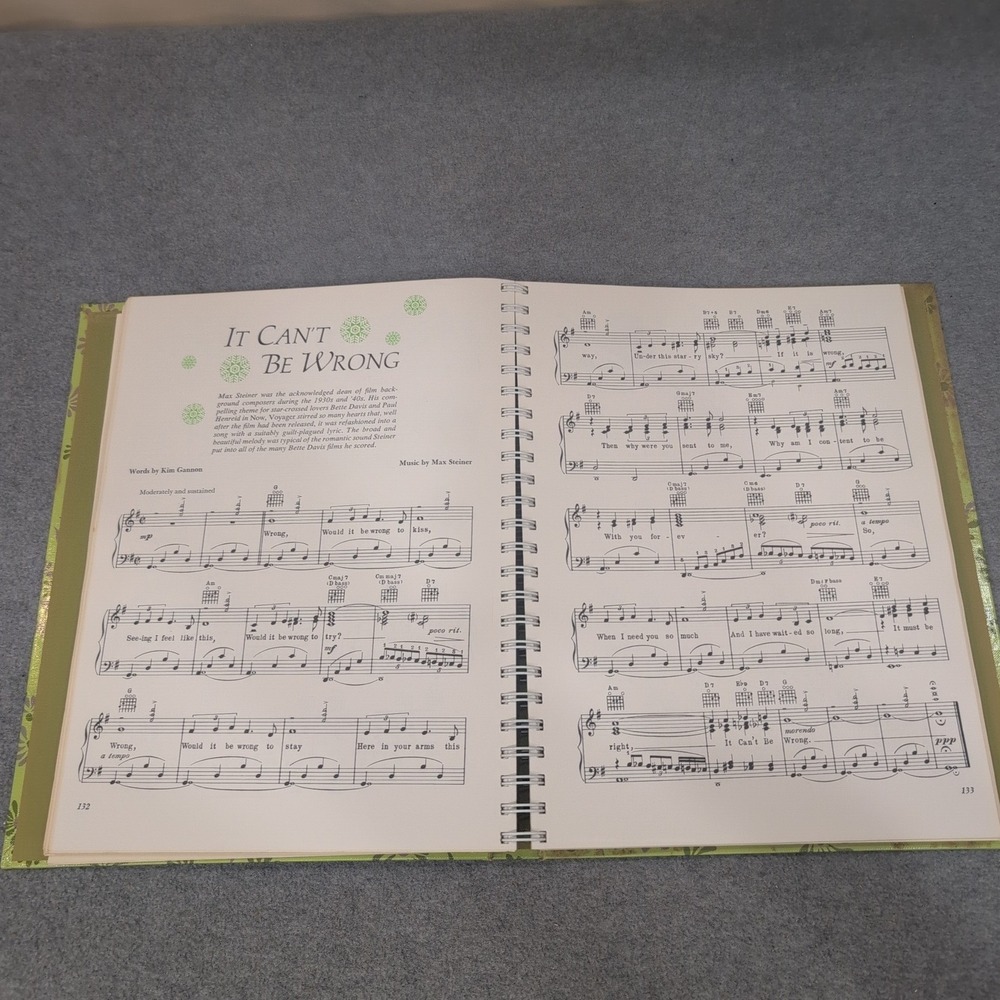 IT CAN'T
BE WRONG
Max Steiner was the acknowledged dean of film back-
ground composers during the 1930s and '40s. His com-
pelling theme for star-crossed lovers Bette Davis and Paul
Henreid in Now, Voyager stirred so many hearts that, well
after the film had been released, it was refashioned into a
song with a suitably guilt-plagued lyric. The broad and
beautiful melody was typical of the romantic sound Steiner
put into all of the many Bette Davis films he scored.
Words by Kim Gannon
Music by Max Steiner
Moderately and sustained
G
mp
Wrong, Would it be wrong to kiss,
Am Cmaj7 (D bass) Cm maj7 (D bass) D7
See-ing I feel like this, Would it be wrong to try?
mf poco rit.
G
Wrong, Would it be wrong to stay Here in your arms this
a tempo
132
Am D7 Dm6 E7 Am7
way, Un-der this star-ry sky? If it is wrong,
mf
D7 Gmaj7 Em7 Am7
Then why were you sent to me, Why am I con-tent to be
Cmaj7 (D bass) Cm6 D7 G
With you for-ev-er? So,
poco rit. a tempo
E7
When I need you so much And I have wait-ed so long, It must be
Am D7 D7 G
right, It Can't Be Wrong.
morendo
ppp
133